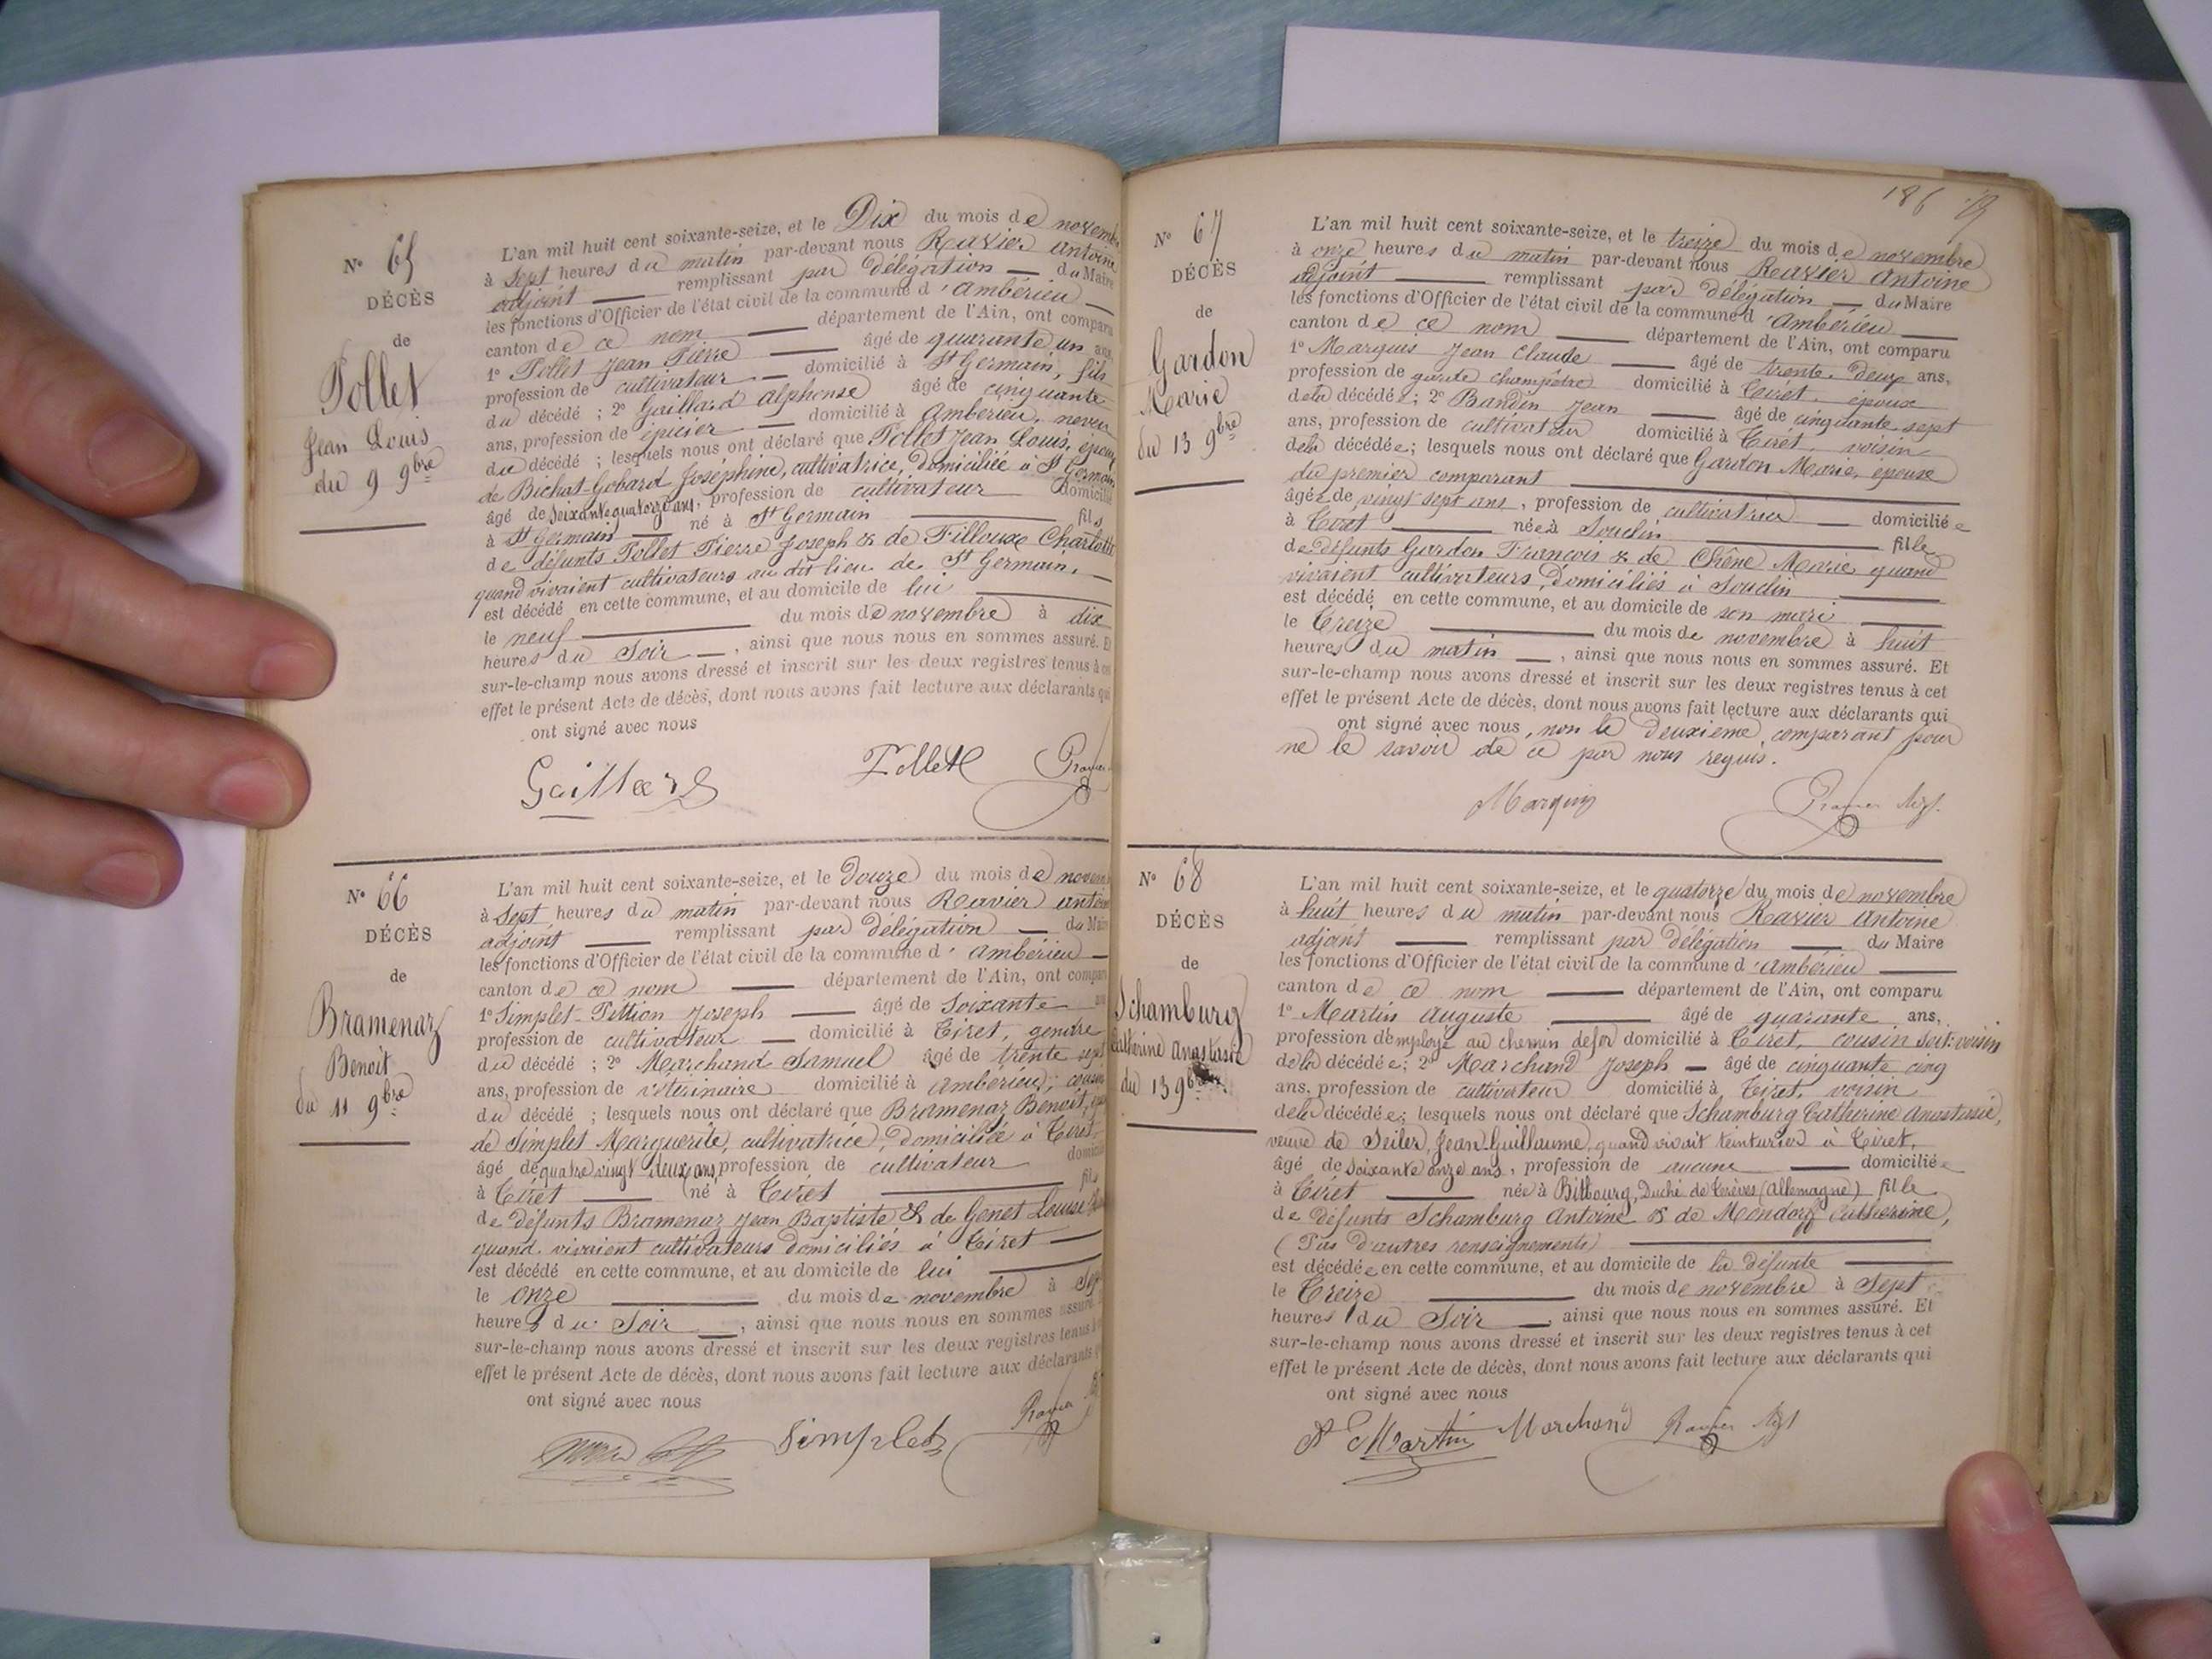 N° 65
DÉCÈS
de
Pollet
Jean Louis
du 9 9bre
L'an mil huit cent soixante-seize, et le Dix du mois de novembre
à Sept heures du matin par-devant nous Ravier Antoine
adjoint remplissant par délégation du Maire
les fonctions d'Officier de l'état civil de la commune d'Ambérieu
canton de ce nom département de l'Ain, ont comparu
1° Pollet Jean Pierre âgé de quarante un ans,
profession de cultivateur domicilié à St Germain, fils
du décédé ; 2° Gaillard Alphonse âgé de cinquante
ans, profession de épicier domicilié à Ambérieu, neveu
du décédé ; lesquels nous ont déclaré que Pollet Jean Louis, époux
de Bichat-Gobard Joséphine, cultivatrice, domiciliée à St Germain
âgé de soixante quatorze ans, profession de cultivateur domicilié
à St Germain né à St Germain fils
de défunts Pollet Pierre Joseph & de Filloux Charlotte
quand vivaient cultivateurs au dit lieu de St Germain,
est décédé en cette commune, et au domicile de lui
le neuf du mois de novembre à dix
heures du Soir, ainsi que nous nous en sommes assuré. Et
sur-le-champ nous avons dressé et inscrit sur les deux registres tenus à cet
effet le présent Acte de décès, dont nous avons fait lecture aux déclarants qui
ont signé avec nous
Gaillard Pollet Ravier
N° 66
DÉCÈS
de
Bramenaz
Benoit
du 11 9bre
L'an mil huit cent soixante-seize, et le Douze du mois de novem
à Sept heures du matin par-devant nous Ravier Antoine
adjoint remplissant par délégation du Maire
les fonctions d'Officier de l'état civil de la commune d'Ambérieu
canton de ce nom département de l'Ain, ont comparu
1° Simplet-Tittion Joseph âgé de soixante
profession de cultivateur domicilié à Tiret, gendre
du décédé ; 2° Marchand Samuel âgé de trente sept
ans, profession de vétérinaire domicilié à Ambérieu, cousin
du décédé ; lesquels nous ont déclaré que Bramenaz Benoit,
de Simplet Marguerite, cultivatrice, domiciliée à Tiret
âgé de quatre vingt deux ans, profession de cultivateur domicilié
à Tiret né à Tiret fils
de défunts Bramenaz Jean Baptiste & de Genet Louise
quand vivaient cultivateurs domiciliés à Tiret
est décédé en cette commune, et au domicile de lui
le onze du mois de novembre à Sept
heures du Soir, ainsi que nous nous en sommes assuré
sur-le-champ nous avons dressé et inscrit sur les deux registres tenus
effet le présent Acte de décès, dont nous avons fait lecture aux déclarants
ont signé avec nous
Simplet Ravier
186
N° 67
DÉCÈS
de
Gardon
Marie
du 13 9bre
L'an mil huit cent soixante-seize, et le treize du mois de novembre
à onze heures du matin par-devant nous Ravier Antoine
adjoint remplissant par délégation du Maire
les fonctions d'Officier de l'état civil de la commune d'Ambérieu
canton de ce nom département de l'Ain, ont comparu
1° Marquis Jean Claude âgé de trente-deux ans,
profession de garde champêtre domicilié à Tiret, époux
de la décédée ; 2° Bandin Jean âgé de cinquante sept
ans, profession de cultivateur domicilié à Tiret, voisin
de la décédée ; lesquels nous ont déclaré que Gardon Marie, épouse
du premier comparant
âgée de vingt sept ans, profession de cultivatrice domiciliée
à Tiret née à Souclin fille
de défunts Gardon François & de Chêne Marie quand
vivaient cultivateurs, domiciliés à Souclin
est décédé en cette commune, et au domicile de son mari
le treize du mois de novembre à huit
heures du matin, ainsi que nous nous en sommes assuré. Et
sur-le-champ nous avons dressé et inscrit sur les deux registres tenus à cet
effet le présent Acte de décès, dont nous avons fait lecture aux déclarants qui
ont signé avec nous, non le deuxième comparant pour
ne le savoir de ce par nous requis.
Marquis Ravier Adjt.
N° 68
DÉCÈS
de
Schamburg
Catherine Anastasie
du 13 9bre
L'an mil huit cent soixante-seize, et le quatorze du mois de novembre
à huit heures du matin par-devant nous Ravier Antoine
adjoint remplissant par délégation du Maire
les fonctions d'Officier de l'état civil de la commune d'Ambérieu
canton de ce nom département de l'Ain, ont comparu
1° Martin Auguste âgé de quarante ans,
profession d'employé au chemin de fer domicilié à Tiret, cousin soit: voisin
de la décédée ; 2° Marchand Joseph âgé de cinquante cinq
ans, profession de cultivateur domicilié à Tiret, voisin
de la décédée ; lesquels nous ont déclaré que Schamburg Catherine Anastasie,
veuve de Seiler, Jean-Guillaume, quand vivait teinturier à Tiret,
âgé de soixante onze ans, profession de aucune domiciliée
à Tiret née à Bittbourg, Duché de Trèves (Allemagne) fille
de défunts Schamburg Antoine & de Mondorff Catherine,
(Pas d'autres renseignements)
est décédée en cette commune, et au domicile de la défunte
le Treize du mois de novembre à Sept
heures du Soir, ainsi que nous nous en sommes assuré. Et
sur-le-champ nous avons dressé et inscrit sur les deux registres tenus à cet
effet le présent Acte de décès, dont nous avons fait lecture aux déclarants qui
ont signé avec nous
A Martin Marchand Ravier Adjt